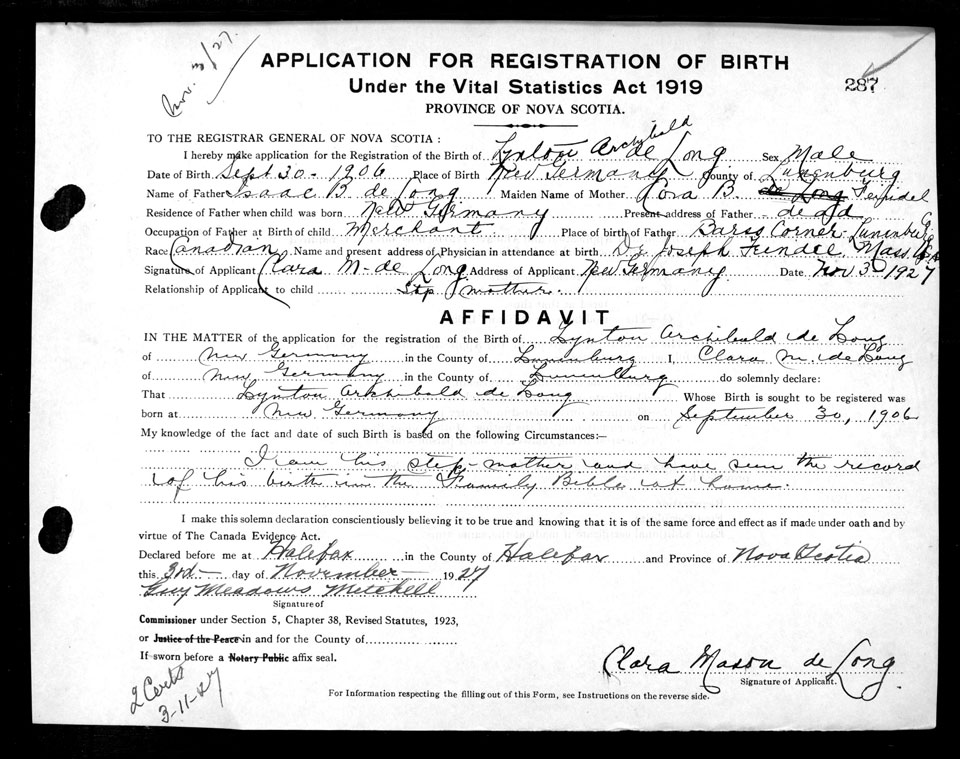 Nov. 3/27.
287
APPLICATION FOR REGISTRATION OF BIRTH
Under the Vital Statistics Act 1919
PROVINCE OF NOVA SCOTIA.
TO THE REGISTRAR GENERAL OF NOVA SCOTIA :
I hereby make application for the Registration of the Birth of Lynton Archibald de Long Sex Male
Date of Birth Sept 30 - 1906 Place of Birth New Germany County of Lunenburg
Name of Father Isaac B. de Long Maiden Name of Mother Cora B. de Long
Residence of Father when child was born New Germany Present address of Father - dead
Occupation of Father at Birth of child Merchant Place of birth of Father Barss Corner - Lunenburg
Race Canadian Name and present address of Physician in attendance at birth Dr. Joseph Mass.
Signature of Applicant Clara M. de Long Address of Applicant New Germany Date Nov 3rd 1927
Relationship of Applicant to child Step mother.
AFFIDAVIT
IN THE MATTER of the application for the registration of the Birth of Lynton Archibald de Long
of New Germany in the County of Lunenburg I, Clara M. de Long
of New Germany in the County of Lunenburg do solemnly declare:
That Lynton Archibald de Long Whose Birth is sought to be registered was
born at New Germany on September 30, 1906
My knowledge of the fact and date of such Birth is based on the following Circumstances:—
I am his step-mother and have seen the record
of his birth in the Family Bible at home.
I make this solemn declaration conscientiously believing it to be true and knowing that it is of the same force and effect as if made under oath and by
virtue of The Canada Evidence Act.
Declared before me at Halifax in the County of Halifax and Province of Nova Scotia
this 3rd day of November 1927
Guy Meadows Mitchell
Signature of
Commissioner under Section 5, Chapter 38, Revised Statutes, 1923,
or Justice of the Peace in and for the County of
If sworn before a Notary Public affix seal.
Clara Mason de Long.
Signature of Applicant.
2 Certs
3-11-27
For Information respecting the filling out of this Form, see Instructions on the reverse side.